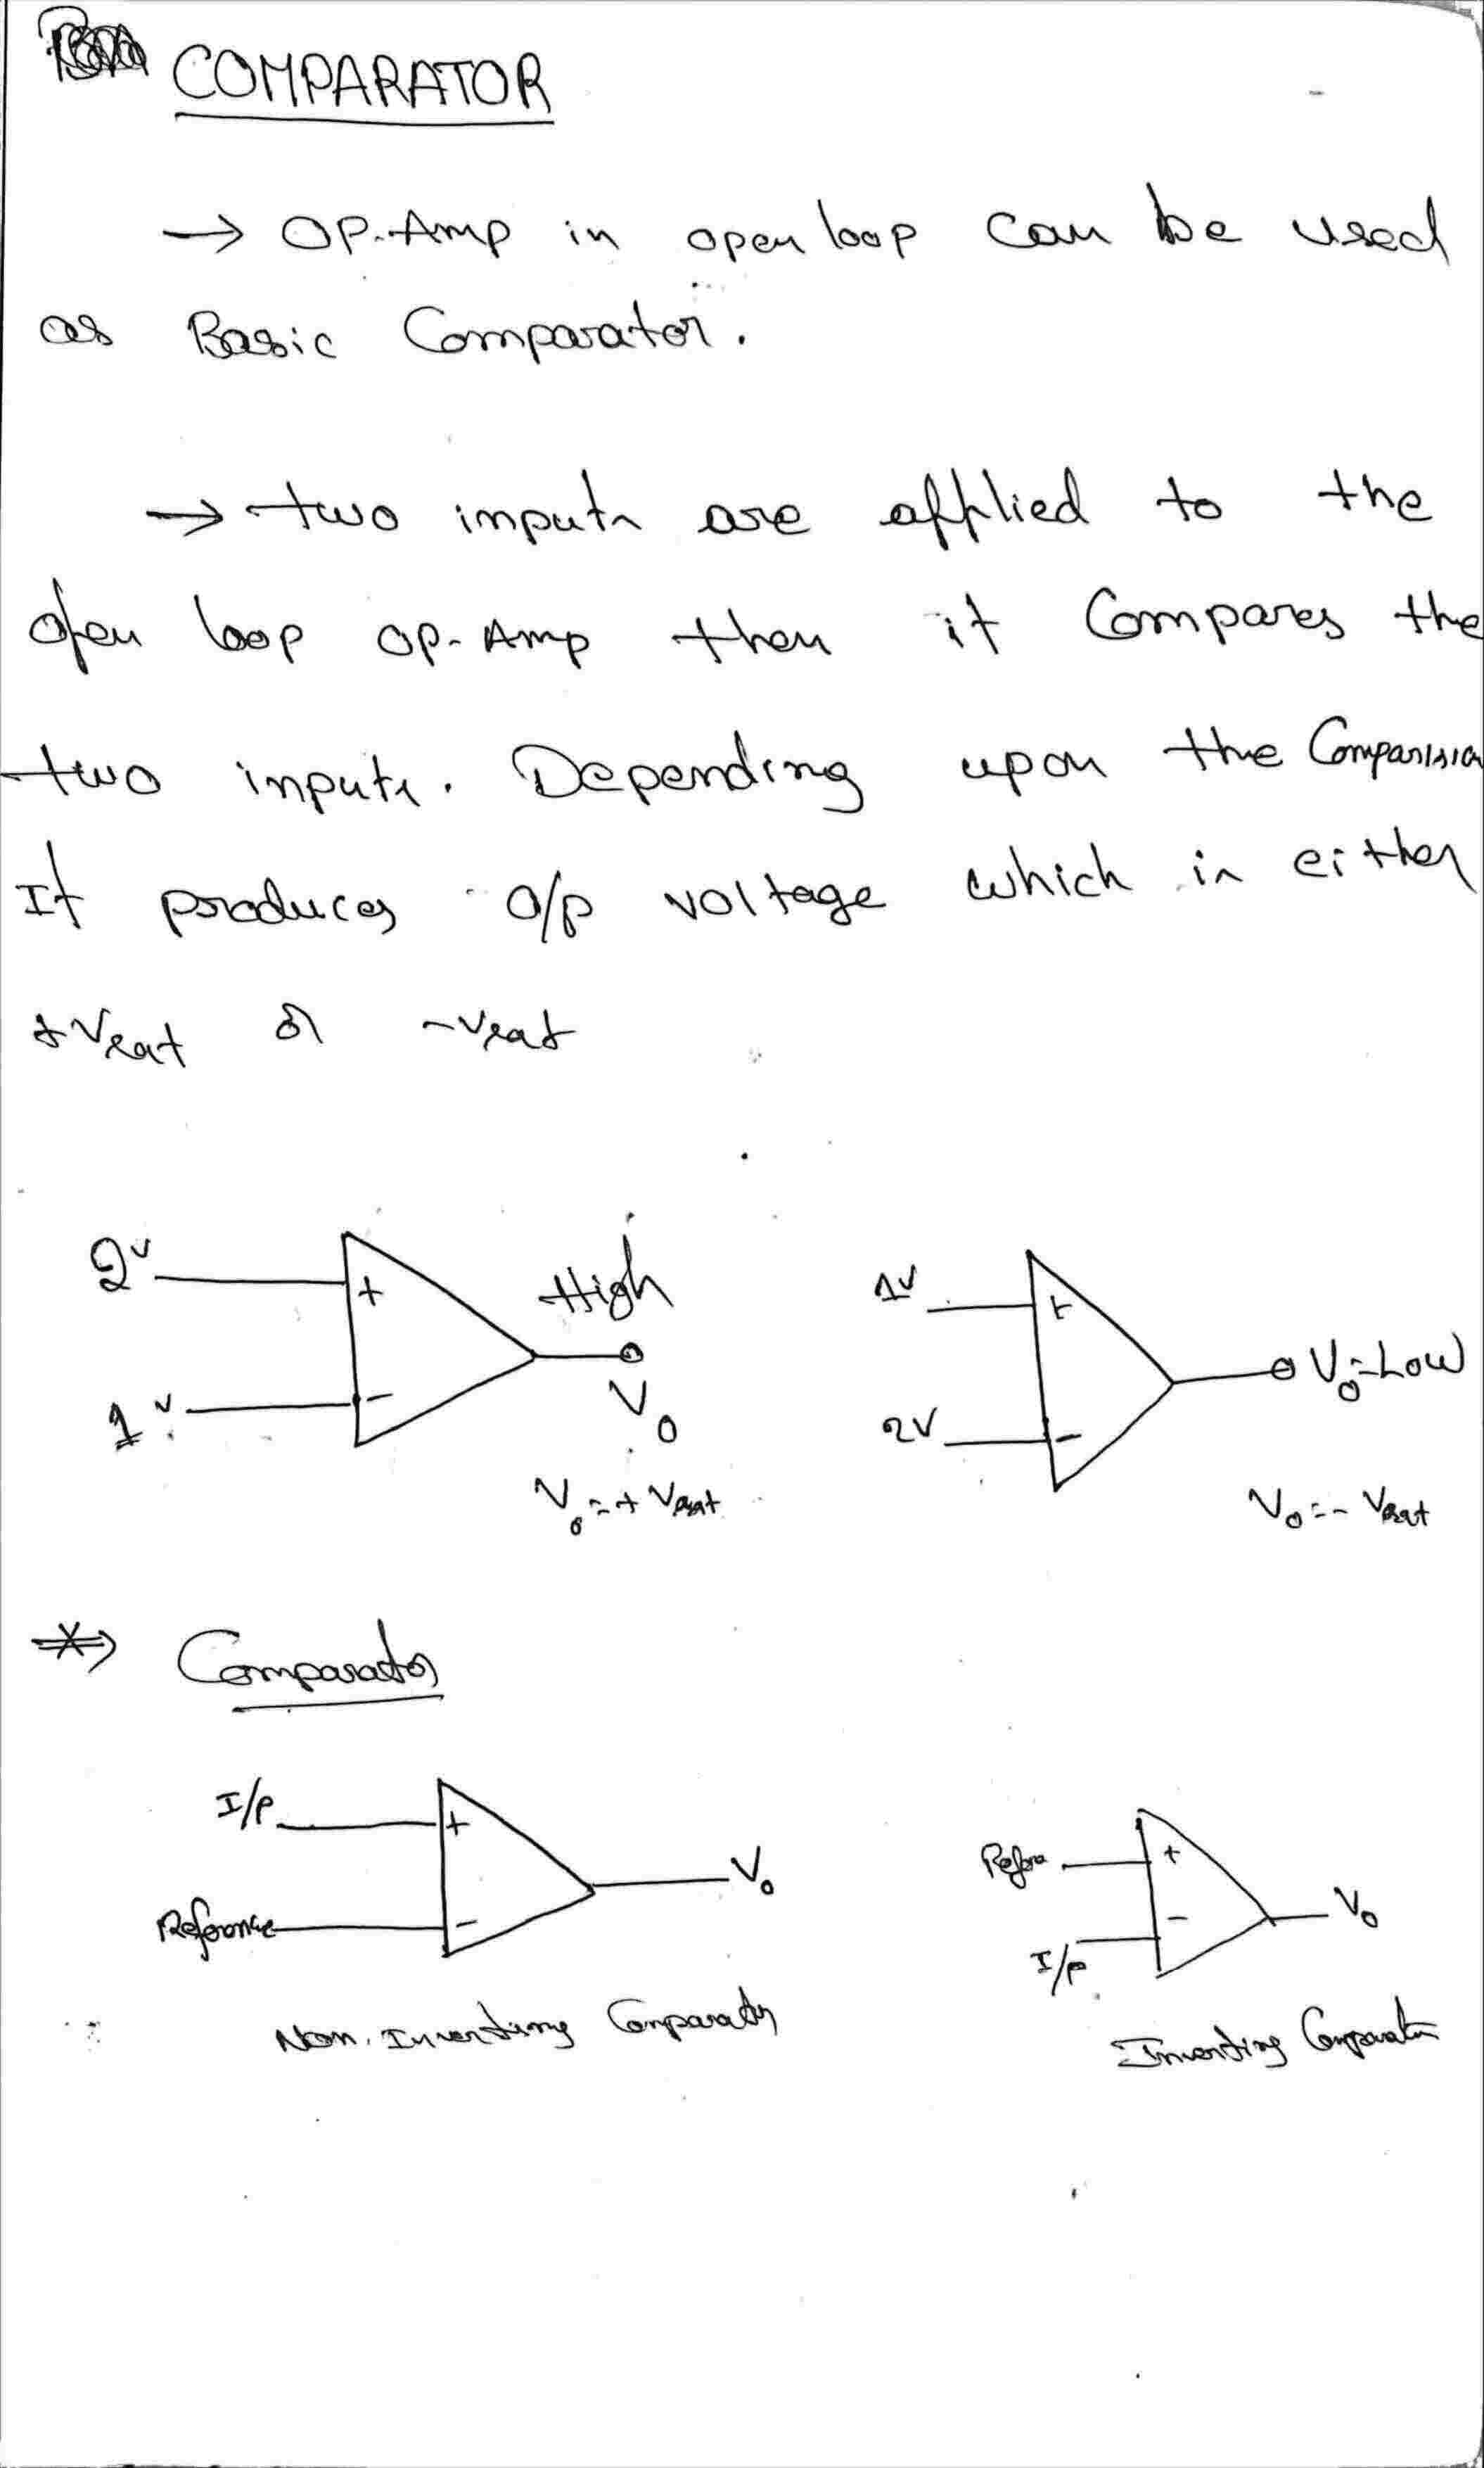 COMPARATOR
→ OP-Amp in open loop can be used
as Basic Comparator.
→ two inputs are applied to the
open loop op-Amp then it Compares the
two inputs. Depending upon the Comparision
It produces o/p voltage which is either
+Vsat or -Vsat
2V + High
1V - V0
V0 = + Vsat
1V + V0 = Low
2V -
V0 = - Vsat
Comparator
I/P + V0
Reference -
Non. Inverting Comparator
Refere + V0
I/P -
Inverting Comparator